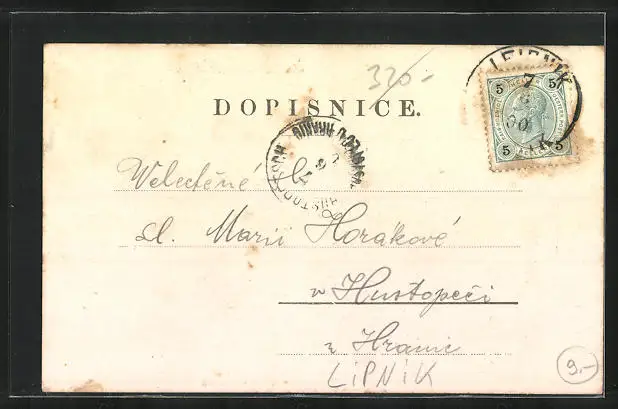 320.-
DOPISNICE.
LEIPNIK
7
5 5
5 5
Velectěné
sl. Marii Horákové
v Hustopeči
z Hranic
LiPNíK
9.-